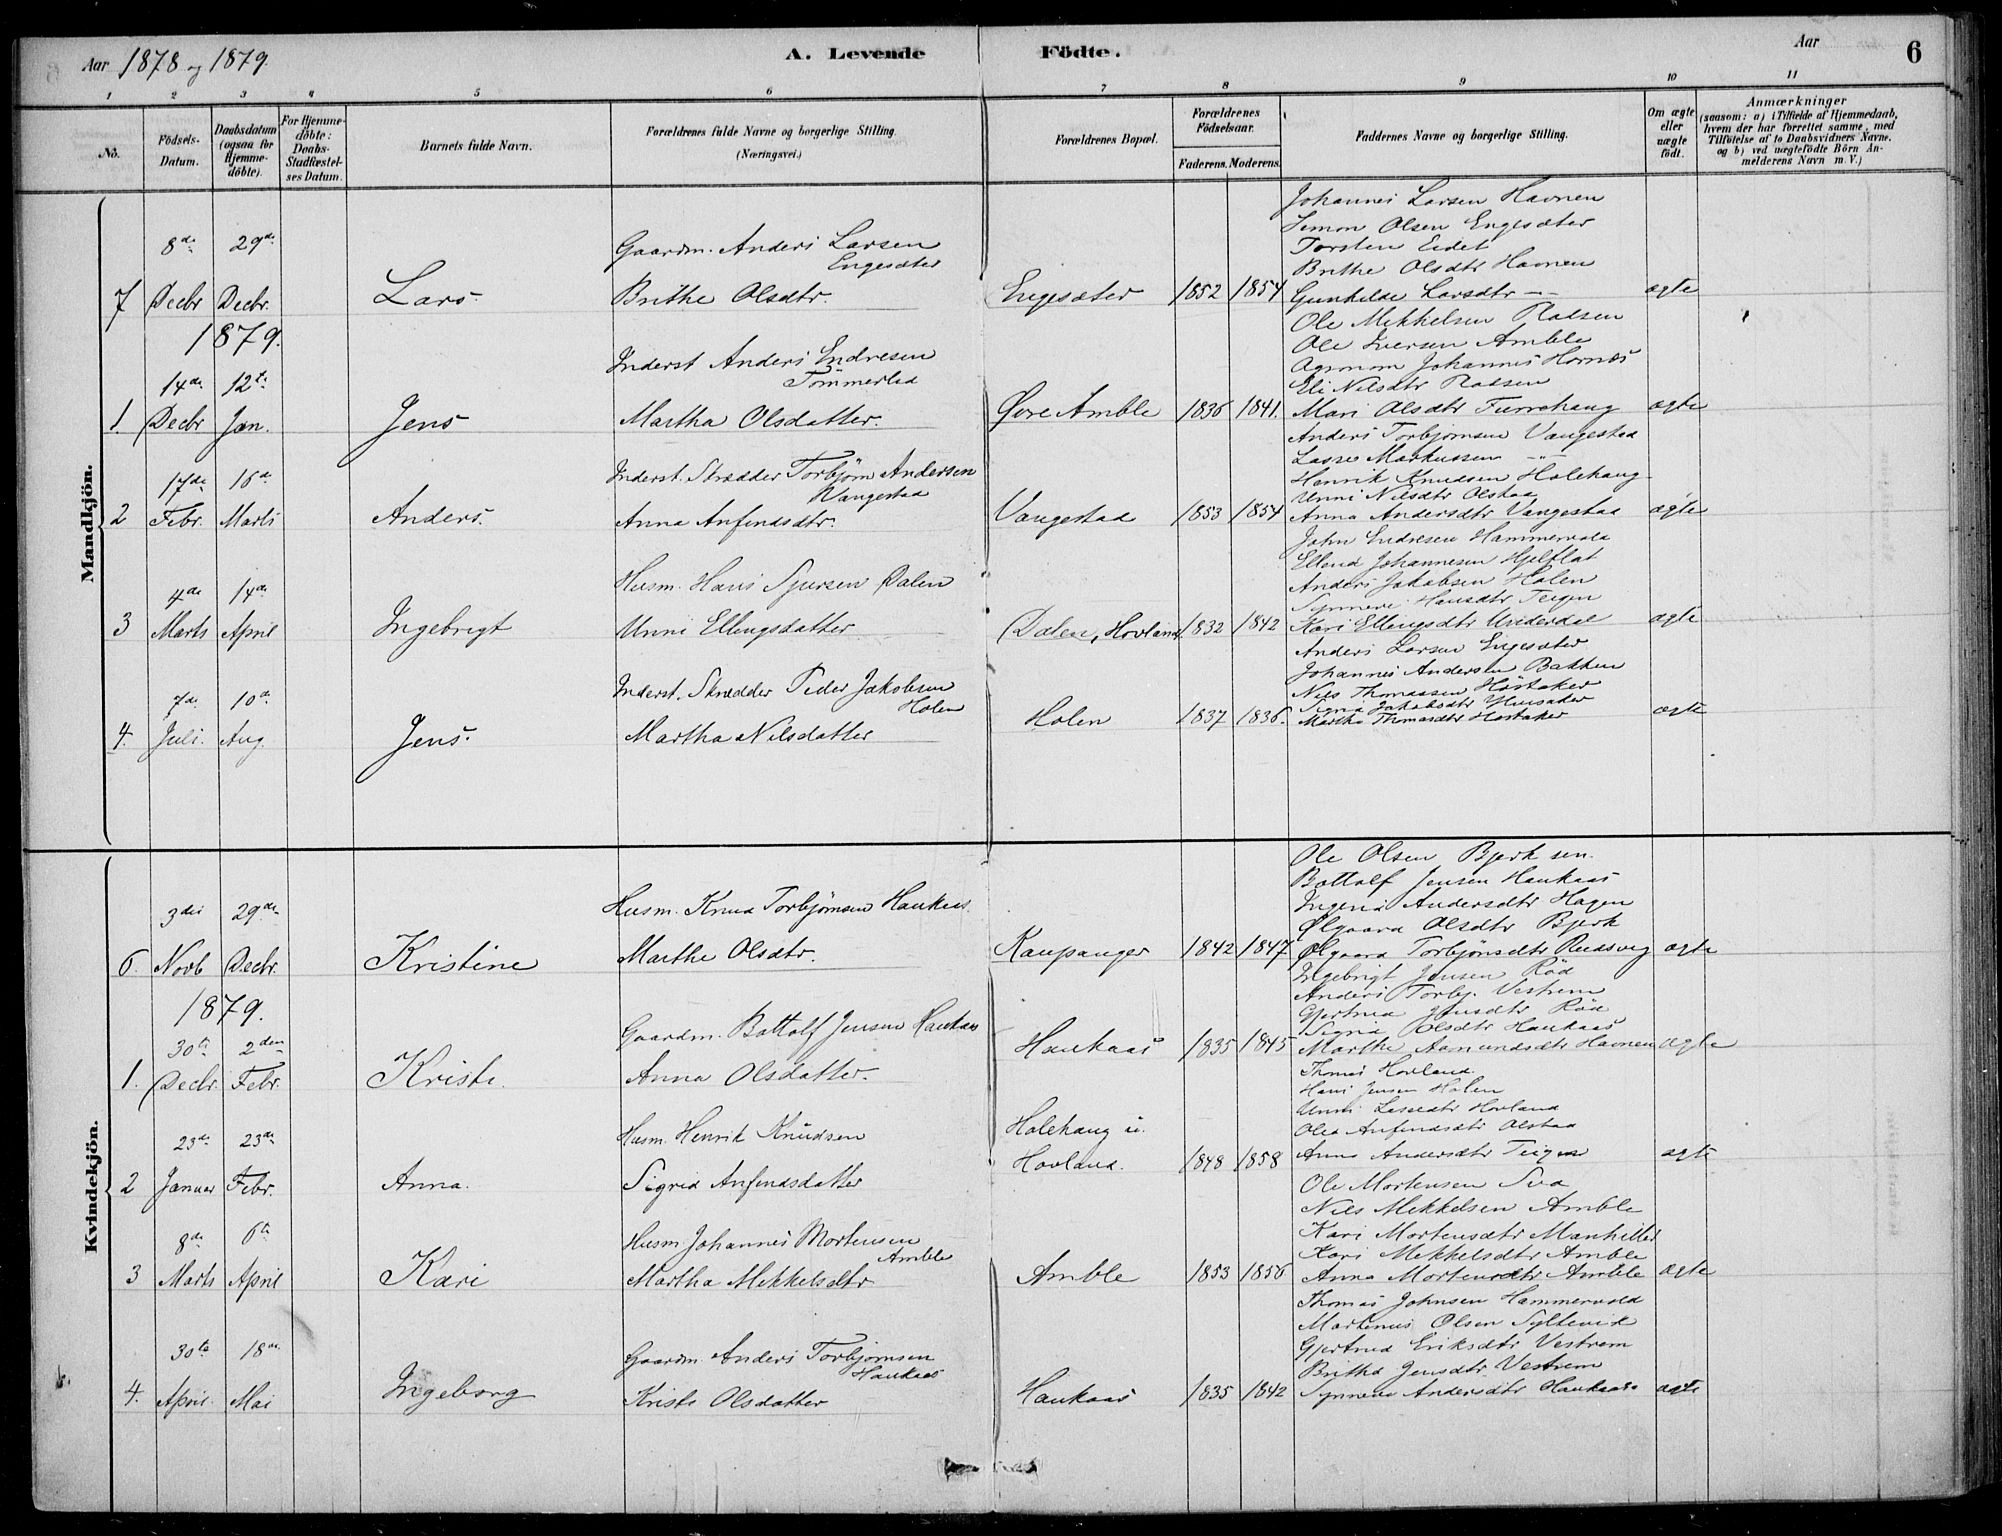 Aar 1878 og 1879.
A. Levende Födte.
Aar
6
1 2 3 4 5 6 7 8 9 10 11
No.
Födsels-Datum.
Daabsdatum (ogsaa for Hjemme-döbte).
For Hjemme-döbte: Daabs-Stadfæstel-ses Datum.
Barnets fulde Navn.
Forældrenes fulde Navne og borgerlige Stilling. (Næringsvei.)
Forældrenes Bopæl.
Forældrenes Födselsaar.
Faderens. Moderens.
Faddernes Navne og borgerlige Stilling.
Om ægte eller uægte födt.
Anmærkninger
(saasom: a) i Tilfælde af Hjemmedaab, hvem der har forrettet samme, med Tilföielse af to Daabsvidners Navne, og b) ved uægtefödte Börn An-melderens Navn m. V.)
Mandkjön.
7 8de Decbr 29de Decbr. Lars.
Gaardm. Anders Larsen
Engesæter
Brithe Olsdtr.
Engesæter 1852 1854
Johannes Larsen Havnen
Simon Olsen Engesæter
Torsten Eidet
Brithe Olsdtr Havnen
Gunhilde Larsdtr — " —
ægte
1879.
1. 14de Decbr 12te Jan. Jens
Inderst Anders Endresen
Tömmerlid
Martha Olsdatter.
Øvre Amble 1836 1841.
Ole Mikkelsen Rolsen
Ole Iversen Amble
Agronom Johannes Hornæs
Eli Nilsdtr Rolsen
Mari Olsdtr Furrehaug
ægte
2 17de Febr. 16de Marts Anders.
Inderst. Skrædder Torbjørn Andersen
Vangestad
Anna Anfindsdtr.
Vangestad 1853 1854
Anders Torbjørnsen Vangestad
Lasse Markussen — " —
Henrik Knudsen Holehaug
Unni Nilsdtr Olstad
Anna Andersdtr Vangestad
ægte
3 4de Marts 14de April Ingebrigt
Husm. Hans Sjursen Dalen
Unni Ellingsdatter
Dalen, Hovland 1832 1842
John Endresen Hammervold
Ellend Johannesen Hjelflat
Anders Jakobsen Holen
Synneve Hansdtr Teigen
Kari Ellingsdtr Underdal
ægte
4. 7de Juli. 10de Aug. Jens.
Inderst. Skrædder Peder Jakobsen
Holen
Martha Nilsdatter
Holen 1837 1836.
Anders Larsen Engesæter
Johannes Andersen Bakken
Nils Thomassen Høstaker
Signa Jakobsdtr
Martha Thomasdtr Høstaker
ægte
Kvindekjön.
6. 3die Novb 29de Decbr. Kristine
Husm. Knud Torbjørnsen Haukaas.
Marthe Olsdtr.
Kaupanger 1842 1847
Ole Olsen Bjerk sen.
Bottolf Jensen Haukaas
Ingerid Andersdtr Hagen
Ølgaard Olsdtr Bjerk
Ølgaard Torbjønsdtr Rudsvig
ægte
1879.
1. 30te Decbr. 2den Febr. Kristi.
Gaardm. Bottolf Jensen Haukaas
Anna Olsdatter.
Haukaas 1835 1845
Ingebrigt Jensen Röd
Anders Torbj. Vestrem
Gjertrud Jensdtr Röd
Sigrid Olsdtr Haukaas
Marthe Aamundsdtr Havnen
ægte
2 23de Januar 23de Febr. Anna.
Husm. Henrik Knudsen
Sigrid Anfindsdatter
Holehaug u.
Hovland. 1848 1858
Thomas Hovland.
Hans Jensen Holen
Unni Lassedtr Hovland
Olea Anfindsdtr Olstad
Anna Andersdtr Teigen
ægte
3 8de Marts 6te April Kari
Husm. Johannes Mortensen
Amble
Martha Mikkelsdtr
Amble 1853 1856
Ole Mortensen Sva
Nils Mikkelsen Amble
Kari Mortensdtr Manheller
Kari Mikkelsdtr Amble
Anna Mortensdtr Amble
ægte
4. 30te April. 18de Mai Ingeborg
Gaardm. Anders Torbjørnsen
Haukaas
Kristi Olsdatter
Haukaas 1835 1842
Thomas Johnsen Hammervold
Martinus Olsen Syltevik
Gjertrud Eriksdtr Vestrem
Britha Jensdtr Vestrem
Synneve Andersdtr Haukaas
ægte